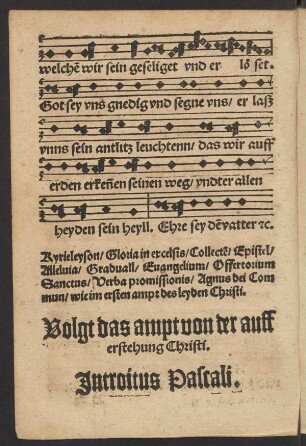 welchē wir sein geseliget vnd er lõ set.
Got sey vns gnedig vnd segne vns/ er laß
vnns sein antlitz leuchtenn/ das wir auff
erden erkeñen seinen weg/ vndter allen
heyden sein heyll. Ehre sey dēvatter ꝛc.
Kyrieleyson/ Gloria in excelsis/ Collectē/ Epistel/
Alleluia/ Graduall/ Euangelium/ Offertorium
Sanctus/ Verba promissionis/ Agnus dei Com
mun/ wie im ersten ampt des leyden Christi.
Volgt das ampt von der auff
erstehung Christi.
Introitus Pascali.